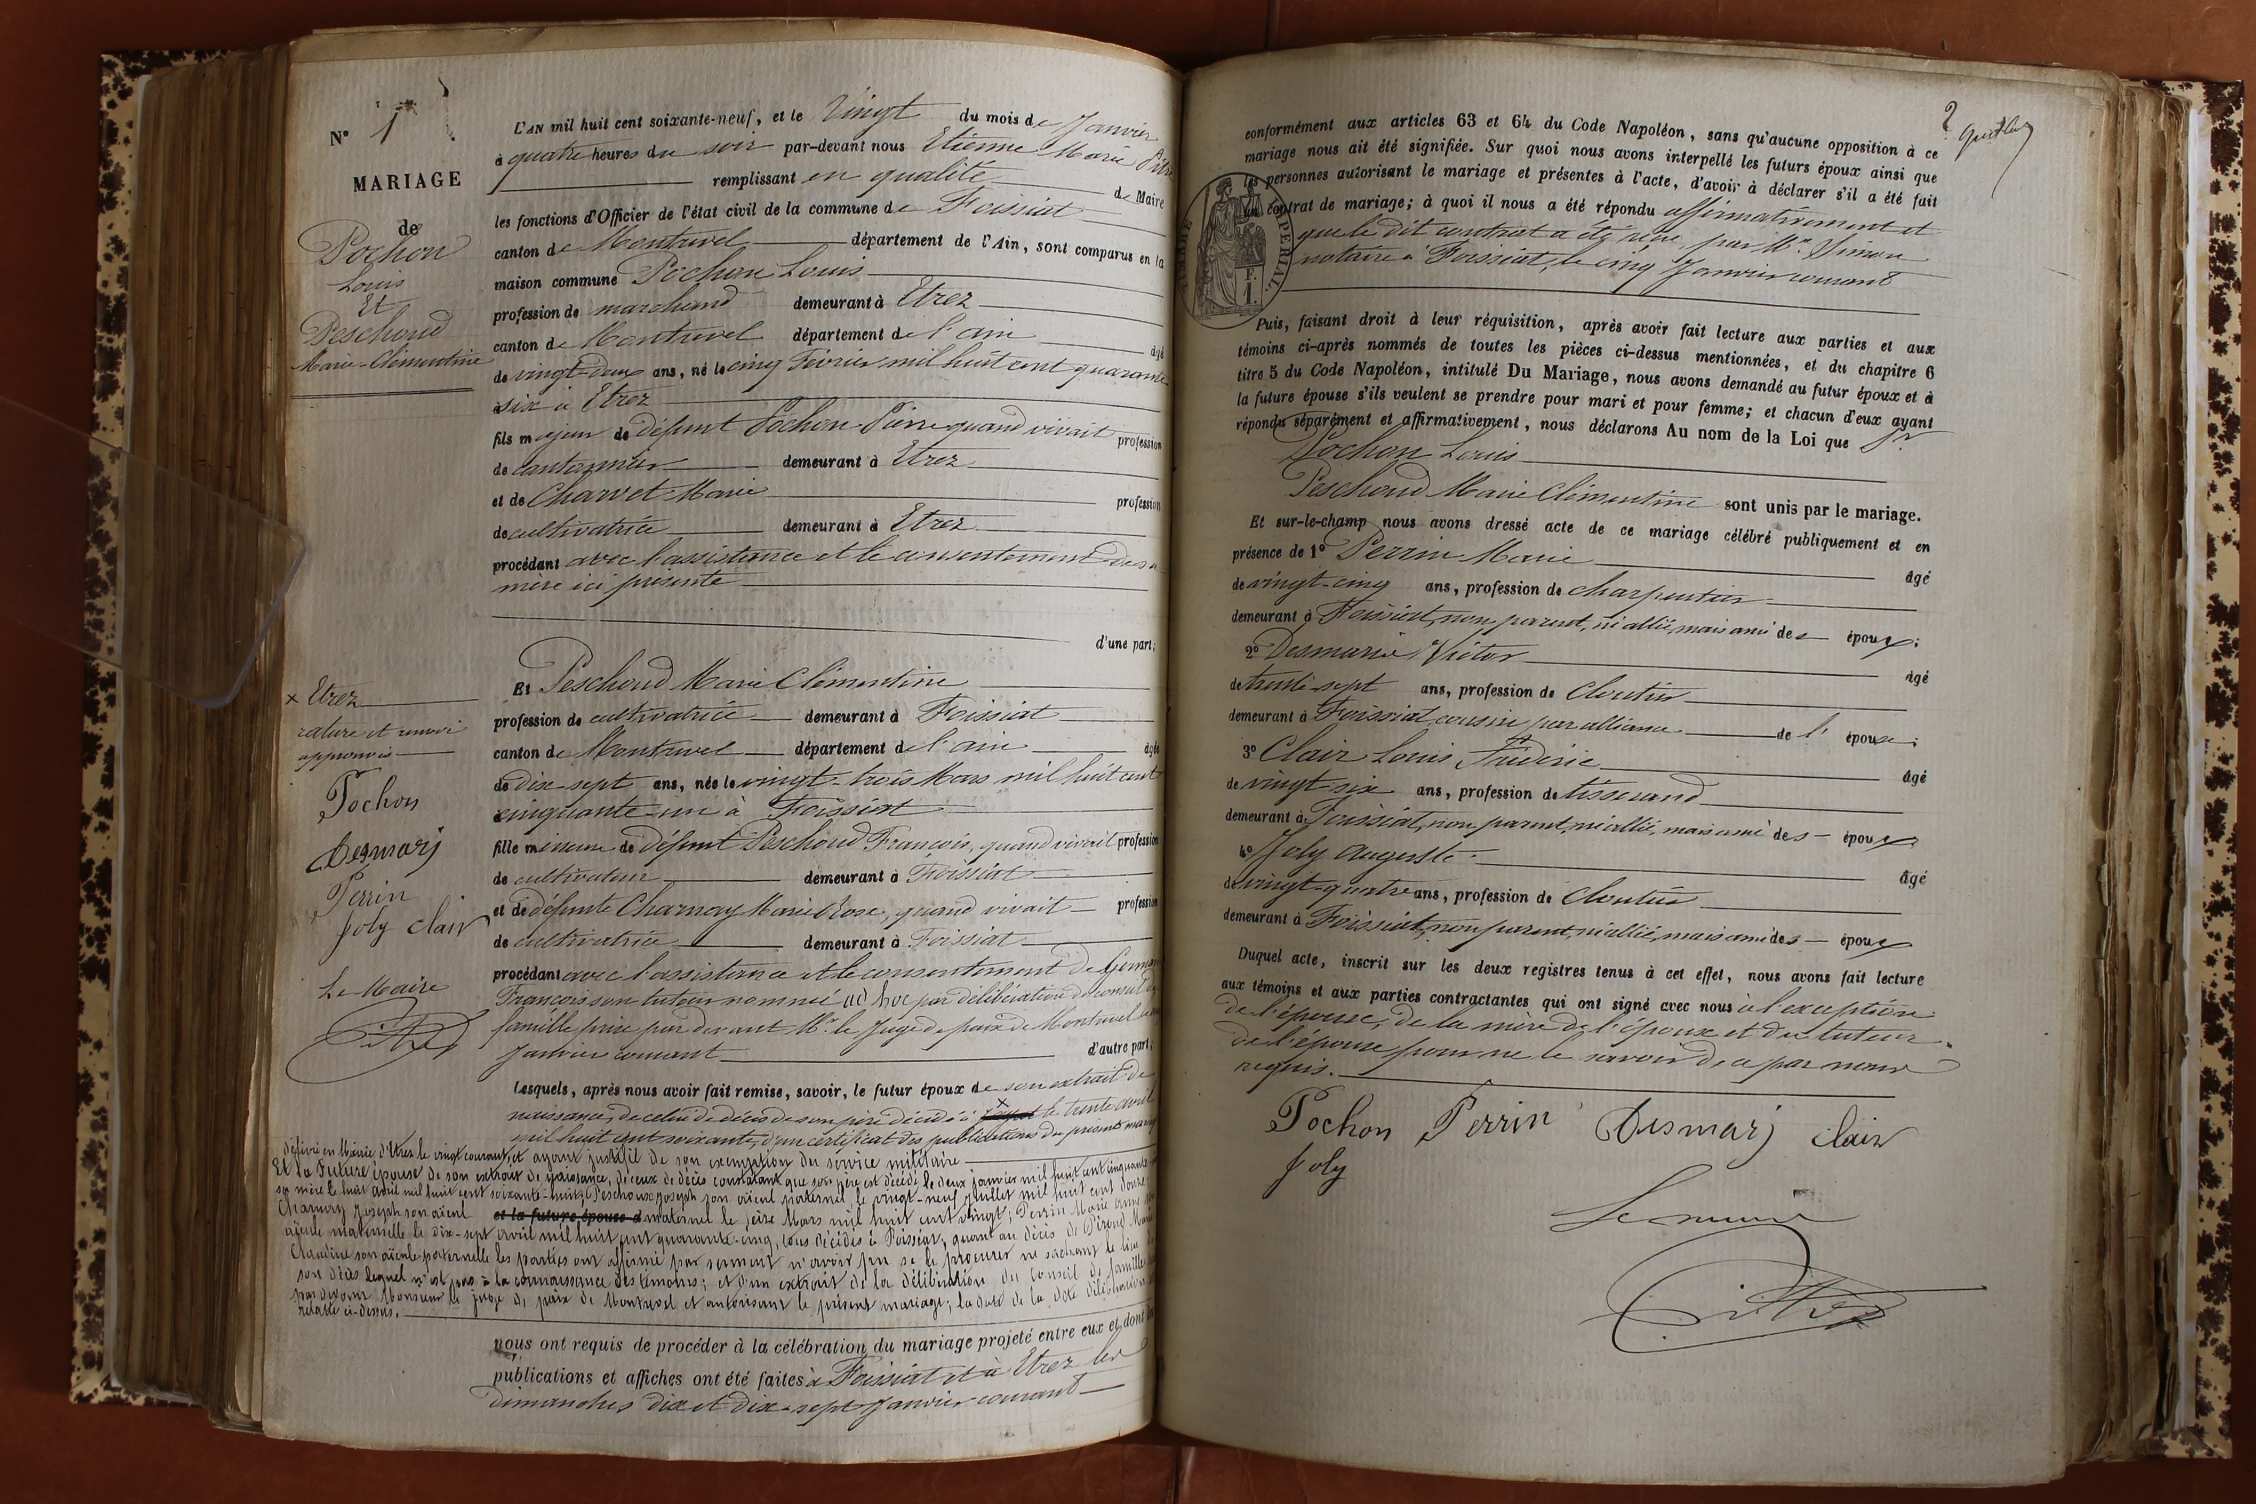 N° 1
MARIAGE
de
Pochon
Louis
Et
Peschoud
Marie-Clémentine
L'AN mil huit cent soixante-neuf, et le Vingt du mois de Janvier
à quatre heures du soir par-devant nous Etienne Marie Pitre
remplissant en qualité de Maire
les fonctions d'Officier de l'état civil de la commune de Foissiat
canton de Montrevel département de l'Ain, sont comparus en la
maison commune Pochon Louis
profession de marchand demeurant à Etrez
canton de Montrevel département de l'ain âgé
de vingt-deux ans, né le cinq Février mil huit cent quarante
six à Etrez
fils majeur de défunt Pochon Pierre quand vivait profession
de cantonnier demeurant à Etrez
et de Charvet Marie profession
de cultivatrice demeurant à Etrez
procédant avec l'assistance et le consentement de sa
mère ici présente
d'une part;
Et Peschoud Marie Clémentine
profession de cultivatrice demeurant à Foissiat
canton de Montrevel département de l'ain âgée
de dix-sept ans, née le vingt-trois Mars mil huit cent
cinquante-un à Foissiat
fille mineure de défunt Peschoud François, quand vivait profession
de cultivateur demeurant à Foissiat
et de défunte Charnay Marie Rose, quand vivait profession
de cultivatrice demeurant à Foissiat
procédant avec l'assistance et le consentement de
François son tuteur nommé ad hoc par délibération du conseil de
famille prise par devant Mr le Juge de paix de Montrevel le
Janvier courant d'autre part;
Lesquels, après nous avoir fait remise, savoir, le futur époux de son extrait de
naissance, de celui de décès de son père décédé à le trente avril
mil huit cent soixante, d'un certificat des publications du présent mariage
délivré en Mairie d'Etrez le vingt courant, et ayant justifié de son exemption du service militaire
Et la Future épouse de son extrait de naissance, de ceux de décès constatant que son père est décédé le deux janvier mil huit cent cinquante
sa mère le huit avril mil huit cent soixante-huit, Peschoux Joseph son aïeul paternel le vingt-neuf Juillet mil huit cent douze
Charnay Joseph son aïeul et la future épouse d maternel le seize Mars mil huit cent vingt; Perrin Marie Anne son
aïeule maternelle le dix-sept avril mil huit cent quarante-cinq, tous décédés à Foissiat, quant au décès de Marie
Claudine son aïeule paternelle les parties ont affirmé par serment n'avoir pu se le procurer ne sachant le lieu de
son décès lequel n'est pas à la connaissance des témoins; et d'un extrait de la délibération du Conseil de famille
par devant Monsieur le juge de paix de Montrevel et autorisant le présent mariage; la date de la dite délibération
relatée ci-dessus.
nous ont requis de procéder à la célébration du mariage projeté entre eux et dont les
publications et affiches ont été faites à Foissiat et à Etrez les
dimanches dix et dix-sept Janvier courant
x Etrez
rature et renvoi
approuvés
Pochon
Desmaris
Perrin
Joly Clair
Le Maire
Pitre
2
conformément aux articles 63 et 64 du Code Napoléon, sans qu'aucune opposition à ce
mariage nous ait été signifiée. Sur quoi nous avons interpellé les futurs époux ainsi que
les personnes autorisant le mariage et présentes à l'acte, d'avoir à déclarer s'il a été fait
un contrat de mariage; à quoi il nous a été répondu affirmativement et
que le dit contrat a été reçu par Me Simon
notaire à Foissiat, le cinq Janvier courant
TIMBRE IMPERIAL.
1 F.
Puis, faisant droit à leur réquisition, après avoir fait lecture aux parties et aux
témoins ci-après nommés de toutes les pièces ci-dessus mentionnées, et du chapitre 6
titre 5 du Code Napoléon, intitulé Du Mariage, nous avons demandé au futur époux et à
la future épouse s'ils veulent se prendre pour mari et pour femme; et chacun d'eux ayant
répondu séparément et affirmativement, nous déclarons Au nom de la Loi que Sr
Pochon Louis
Peschoud Marie Clémentine sont unis par le mariage.
Et sur-le-champ nous avons dressé acte de ce mariage célébré publiquement et en
présence de 1° Perrin Marie âgé
de vingt-cinq ans, profession de charpentier
demeurant à Foissiat, non parent, ni allié, mais ami des époux;
2° Desmaris Victor âgé
de trente-sept ans, profession de Cloutier
demeurant à Foissiat, cousin par alliance de l' épouse;
3° Clair Louis Frédéric âgé
de vingt-six ans, profession de tisserand
demeurant à Foissiat, non parent, ni allié, mais ami des époux
4° Joly Auguste âgé
de vingt-quatre ans, profession de Cloutier
demeurant à Foissiat, non parent, ni allié, mais ami des époux
Duquel acte, inscrit sur les deux registres tenus à cet effet, nous avons fait lecture
aux témoins et aux parties contractantes qui ont signé avec nous à l'exception
de l'épouse, de la mère de l'époux et du tuteur
de l'épouse pour ne le savoir de ce par nous
requis.
Pochon Perrin Desmaris Clair
Joly
Le maire
Pitre